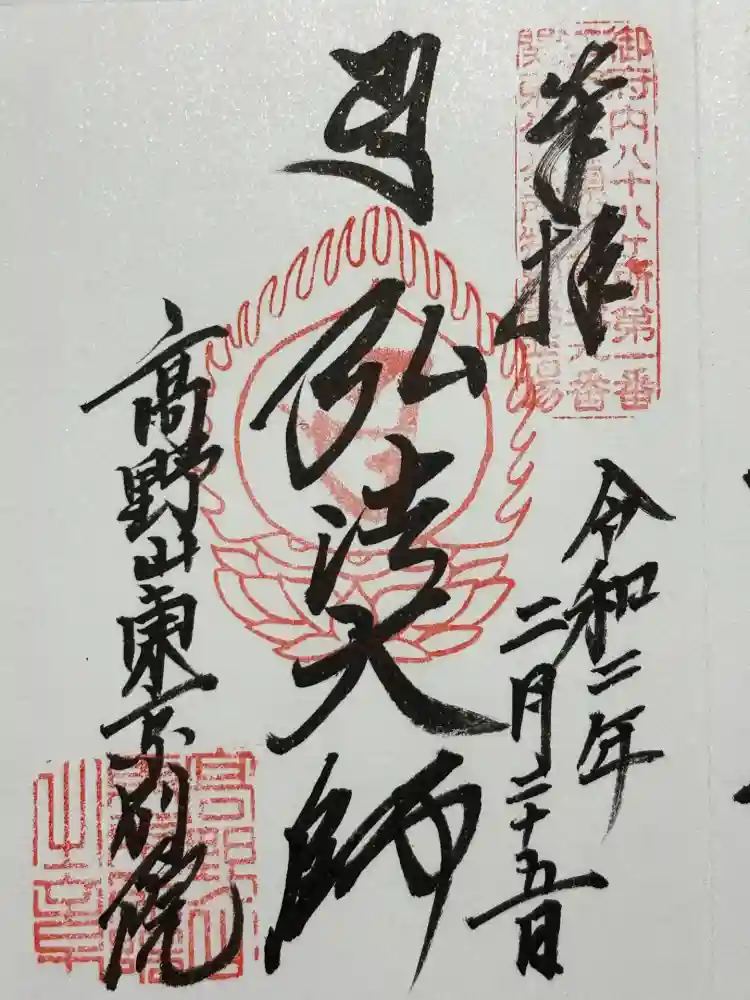 奉拝
御府内八十八ヶ所第一番
令和二年
二月二十五日
弘法大師
高野山東京別院